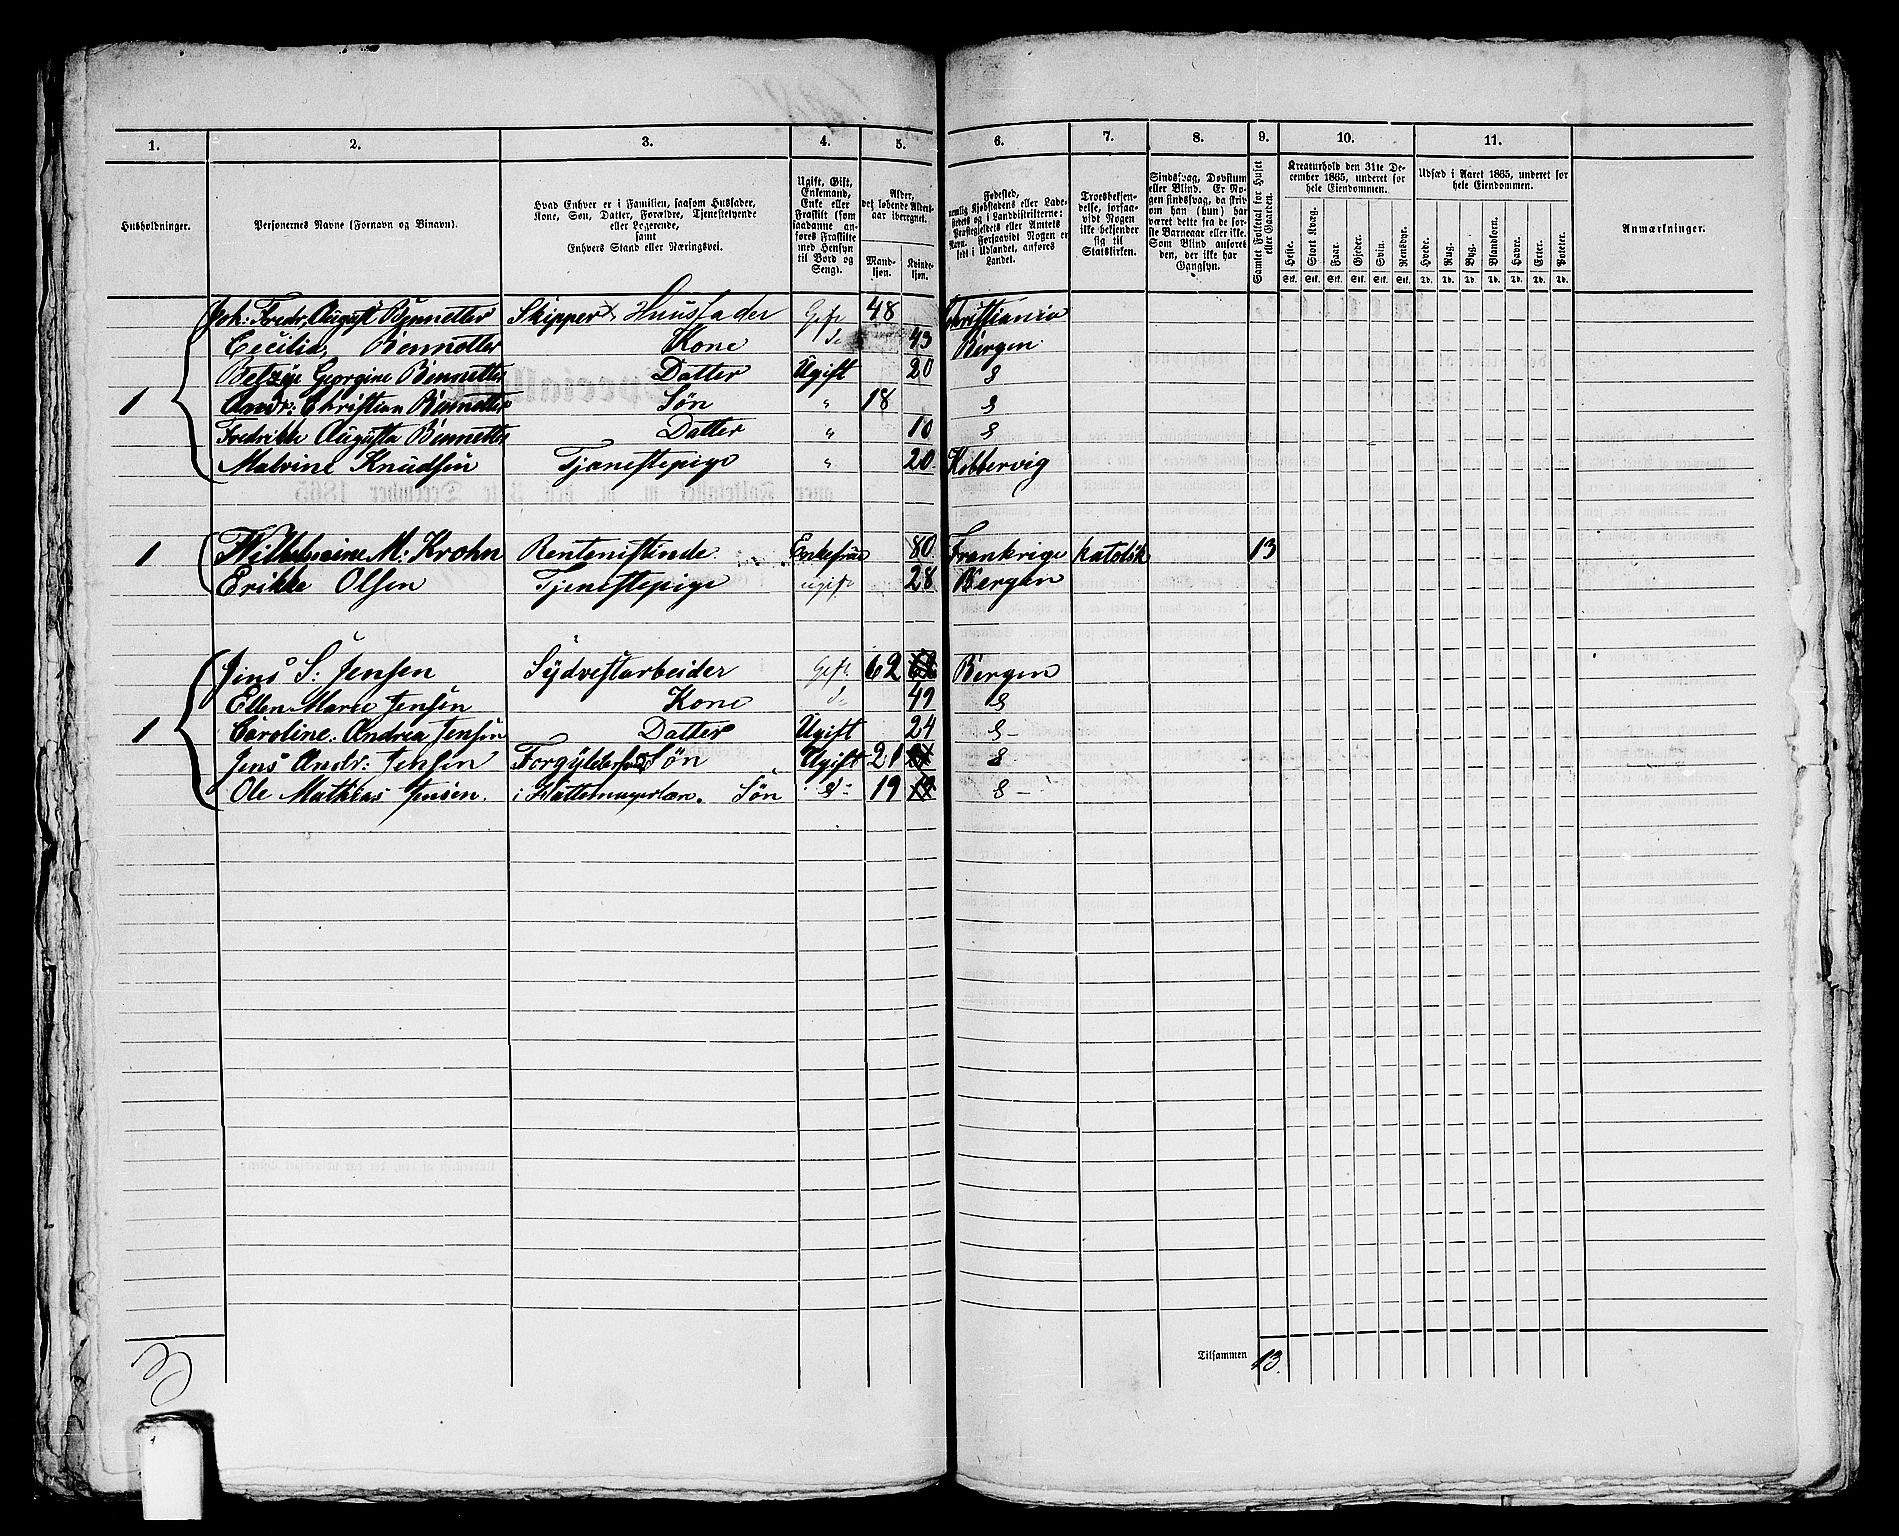 1. 2. 3. 4. 5. 6. 7. 8. 9. 10. 11.
Husholdninger.
Personernes Navne (Fornavn og Binavn).
Hvad Enhver er i Familien, saasom Husfader,
Kone, Søn, Datter, Forældre, Tjenestetyende
eller Logerende,
samt
Enhvers Stand eller Næringsvei.
Ugift, Gift,
Enkemand,
Enke eller
Fraskilt (som
saadanne an-
føres Fraskilte
med Hensyn
til Bord og
Seng).
Alder,
det løbende Alders-
aar iberegnet.
Mand-
kjøn.
Kvinde-
kjøn.
Fødested,
nemlig Kjøbstadens eller Lade-
stedets og i Landdistrikterne:
Præstegjeldets eller Amtets
Navn. Forsaavidt Nogen er
født i Udlandet, anføres
Landet.
Troesbekjen-
delse, forsaa-
vidt Nogen
ikke bekjender
sig til
Statskirken.
Sindssvag, Døvstum
eller Blind. Er No-
gen sindssvag, da skri-
ves om han (hun) har
været dette fra de før-
ste Barneaar eller ikke.
Som Blind anføres
den, der ikke har
Gangsyn.
Samlet Folketal for Huset
eller Gaarden.
Kreaturhold den 31te De-
cember 1865, underet for
hele Eiendommen.
Heste. Stort Kvæg. Faar. Gjeder. Svin. Rensdyr.
Stk. Stk. Stk. Stk. Stk. Stk.
Udsæd i Aaret 1865, underet for
hele Eiendommen.
Hvede. Rug. Byg. Blandkorn. Havre. Erter. Poteter.
Td. Td. Td. Td. Td. Td. Td.
Anmærkninger.
Joh: Fredr. August Bennetter Skipper, Huusfader Gift 48 Christiania
Cecilia Bennetter Kone do 43 Bergen
Betzye Georgine Bennetter Datter Ugift 20 do
1 Andr: Christian Bennetter Søn " 18 do
Fredrikke Augusta Bennetter Datter " 10 do
Malvine Knudsen Tjenestepige " 20 Kobbervig
1 Wilhelmine M. Krohn Rentenistinde Enkefrue 80 Frankrige katolsk 13
Erikke Olsen Tjenestepige ugift 28 Bergen
Jens S: Jensen Sydvestarbeider Gift 62 Bergen
Ellen Marie Jensen Kone do 49 do
1 Caroline Andrea Jensen Datter Ugift 24 do
Jens Andr: Jensen Forgylder Søn Ugift 21 do
Ole Mathias Jensen. i Hattemagerlære. Søn do 19 do
Tilsammen 13.
3